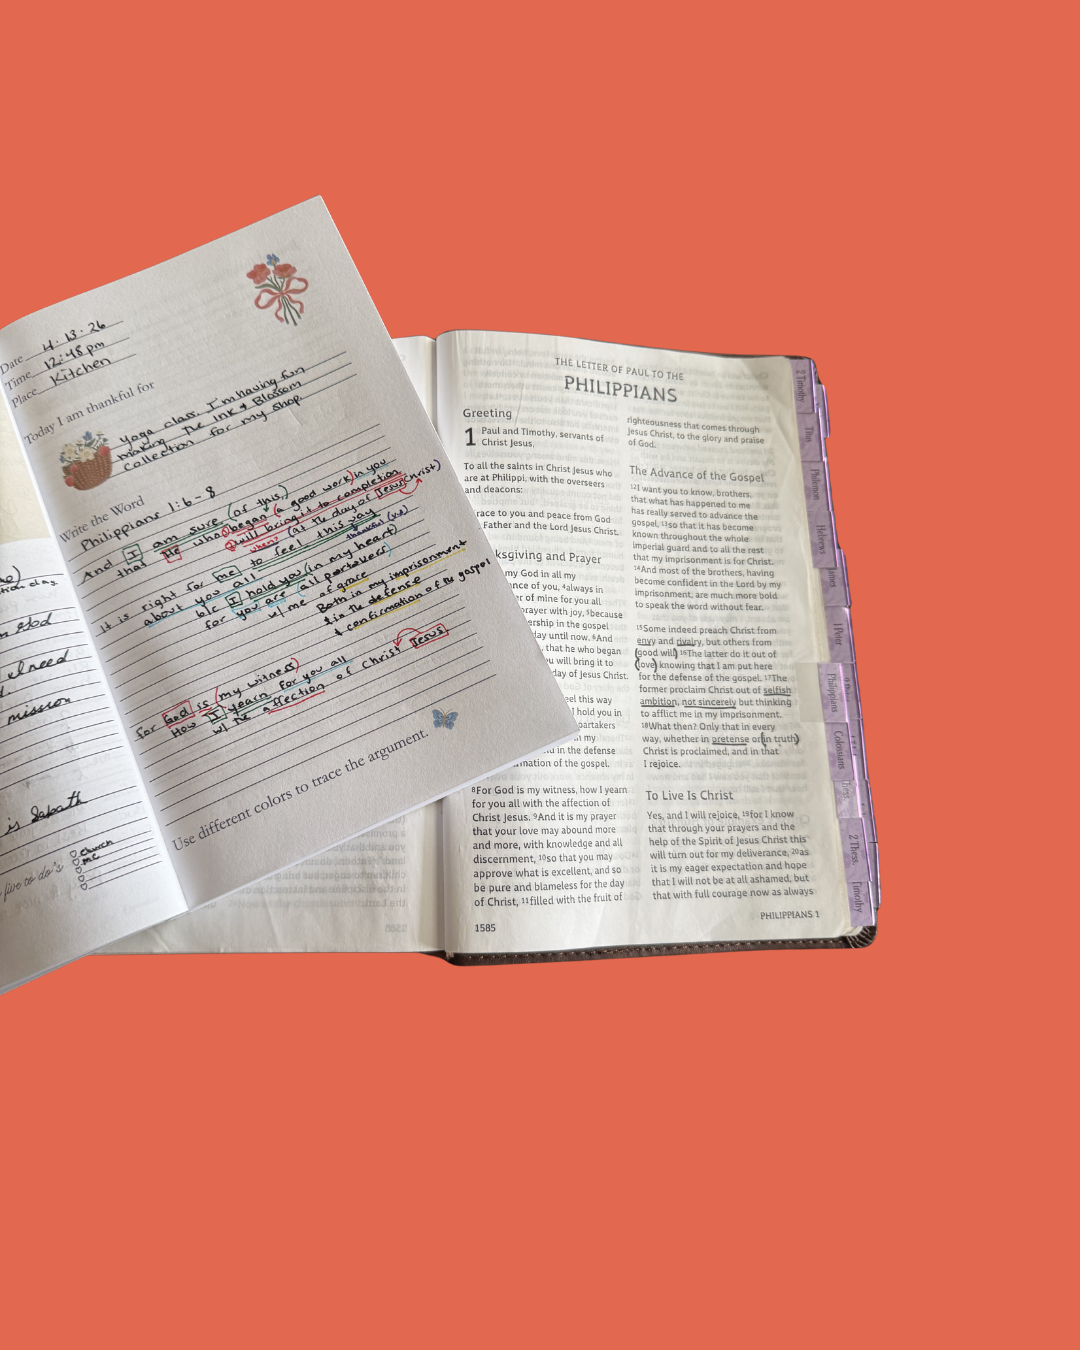 Date 4.13.26
Time 12:48pm
Place Kitchen
Today I am thankful for
yoga class. I'm having fun
making The Ink & Blossom
collection for my shop.
Write the Word
Philippians 1:6-8
And I am sure (of this,)
that He who began (a good work) in you
will bring it to completion
when? (at the day of Jesus Christ)
It is right for me to feel this way
about you all
b/c I hold you (in my heart)
for you are all partakers
w/ me of grace
Both in my imprisonment
& in the defense
& confirmation of the gospel
For God is (my witness)
How I yearn for you all
w/ the affection of Christ Jesus.
Use different colors to trace the argument.
God
I need
mission
is Sabath
five to do's
Church
THE LETTER OF PAUL TO THE
PHILIPPIANS
Greeting
1 Paul and Timothy, servants of
Christ Jesus,
To all the saints in Christ Jesus who
are at Philippi, with the overseers
and deacons:
race to you and peace from God
Father and the Lord Jesus Christ.
ksgiving and Prayer
my God in all my
ance of you, 4always in
er of mine for you all
prayer with joy, 5because
ership in the gospel
day until now. 6And
that he who began
u will bring it to
day of Jesus Christ.
eel this way
I hold you in
partakers
in my
in the defense
nation of the gospel.
8For God is my witness, how I yearn
for you all with the affection of
Christ Jesus. 9And it is my prayer
that your love may abound more
and more, with knowledge and all
discernment, 10so that you may
approve what is excellent, and so
be pure and blameless for the day
of Christ, 11filled with the fruit of
1585
righteousness that comes through
Jesus Christ, to the glory and praise
of God.
The Advance of the Gospel
12I want you to know, brothers,
that what has happened to me
has really served to advance the
gospel, 13so that it has become
known throughout the whole
imperial guard and to all the rest
that my imprisonment is for Christ.
14And most of the brothers, having
become confident in the Lord by my
imprisonment, are much more bold
to speak the word without fear.
15Some indeed preach Christ from
envy and rivalry, but others from
good will. 16The latter do it out of
love, knowing that I am put here
for the defense of the gospel. 17The
former proclaim Christ out of selfish
ambition, not sincerely but thinking
to afflict me in my imprisonment.
18What then? Only that in every
way, whether in pretense or in truth,
Christ is proclaimed, and in that
I rejoice.
To Live Is Christ
Yes, and I will rejoice, 19for I know
that through your prayers and the
help of the Spirit of Jesus Christ this
will turn out for my deliverance, 20as
it is my eager expectation and hope
that I will not be at all ashamed, but
that with full courage now as always
PHILIPPIANS 1
2 Timothy
Titus
Philemon
Hebrews
James
1 Peter
Philippians
Colossians
Thess
2 Thess.
Timothy